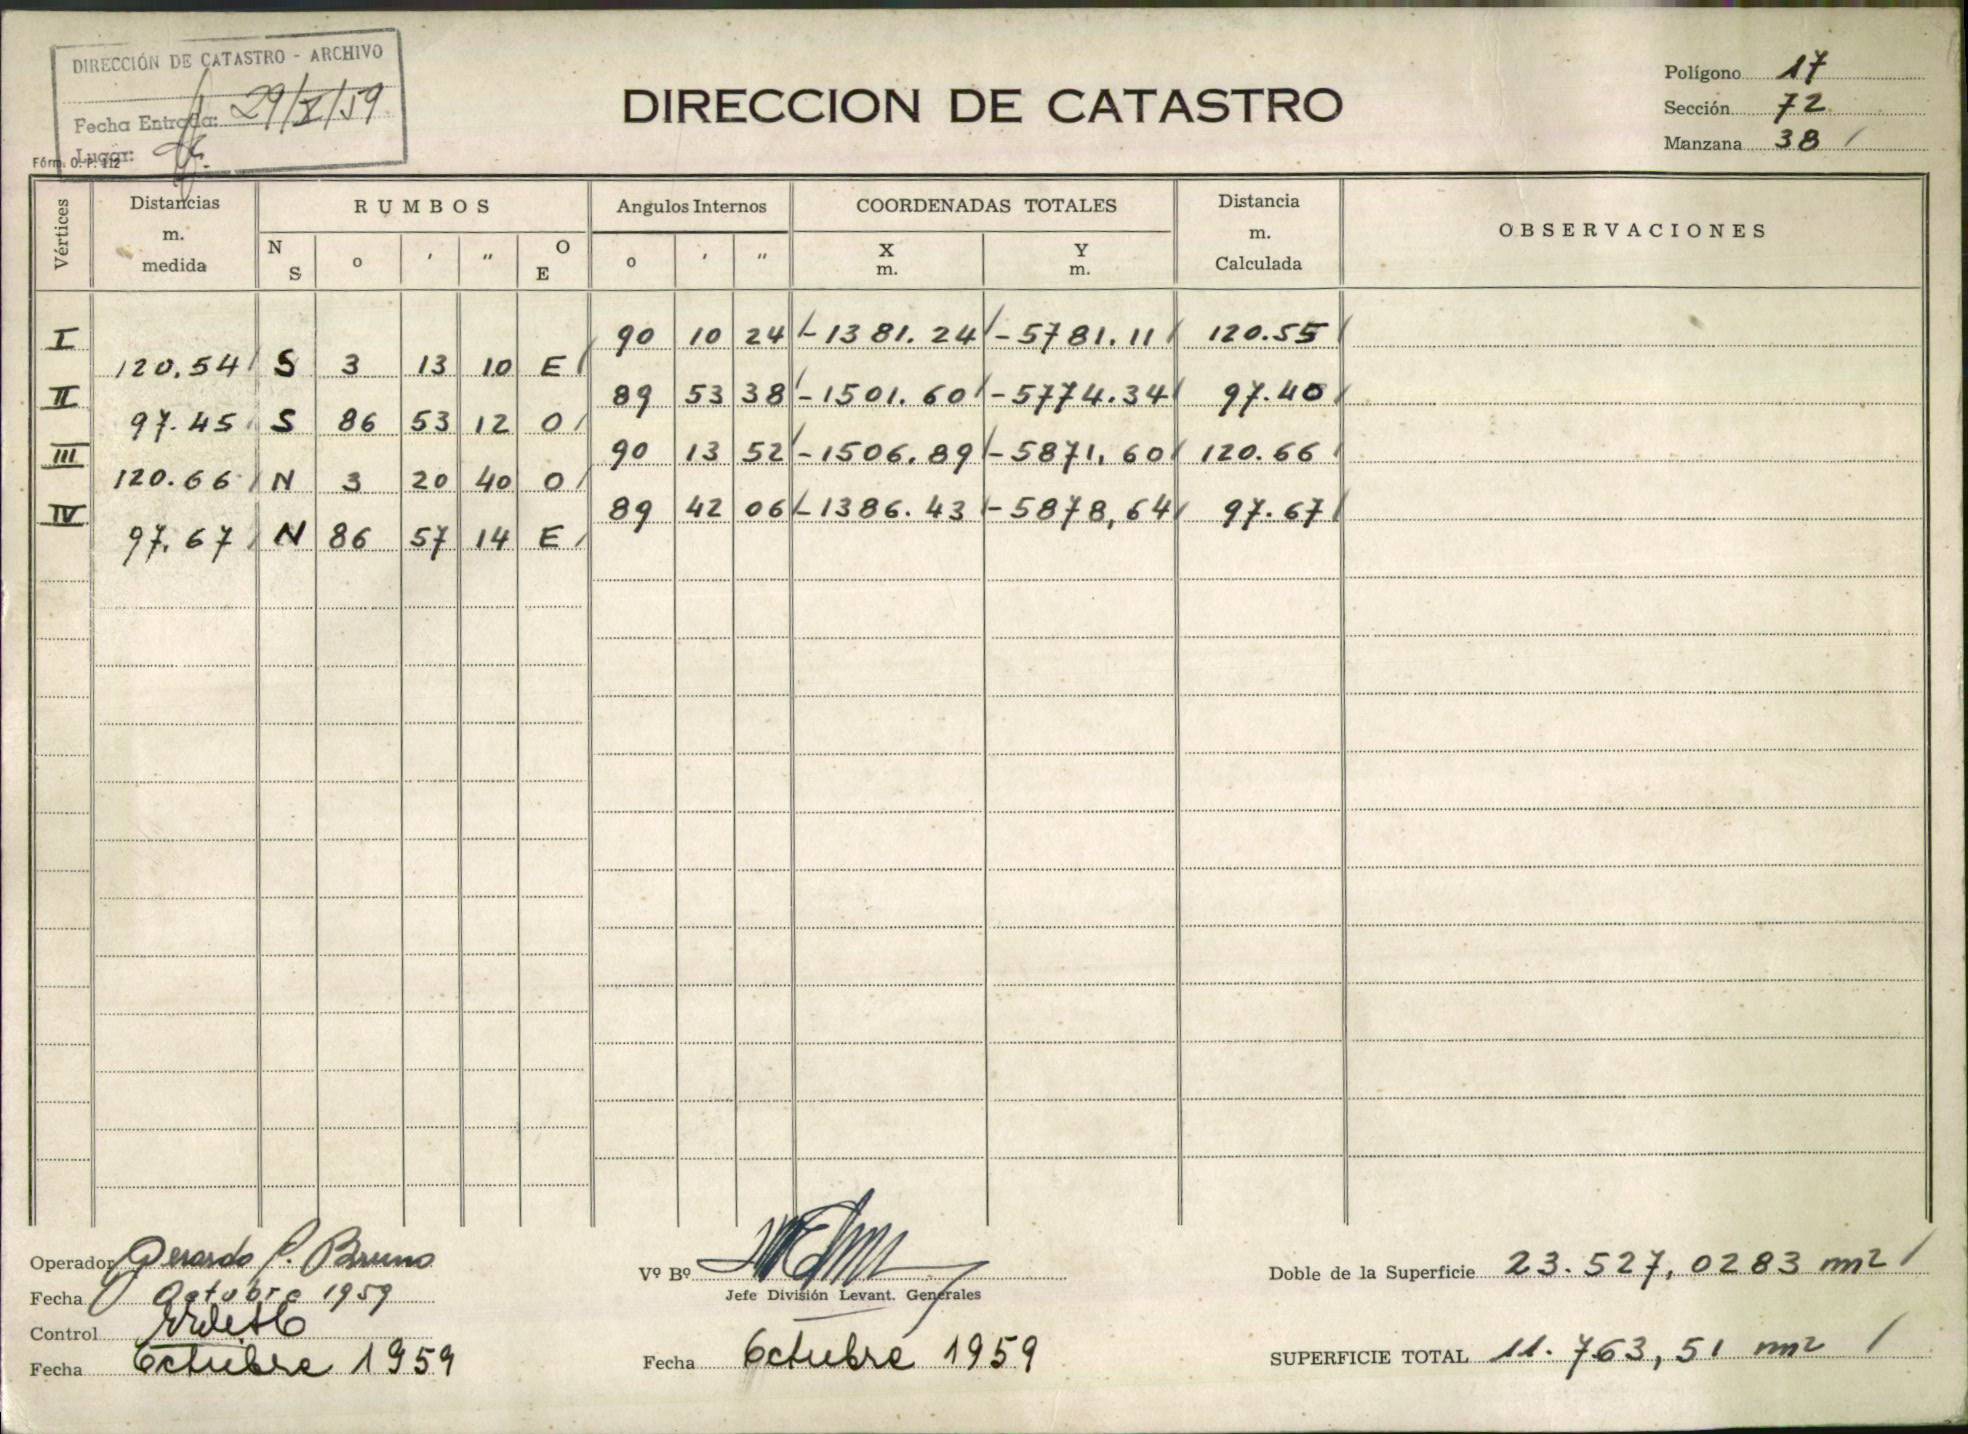 DIRECCIÓN DE CATASTRO - ARCHIVO
Fecha Entrada: 29/X/59
Lugar:
Fórm. O. P. 112
DIRECCION DE CATASTRO
Polígono 17
Sección 72
Manzana 38
Vértices Distancias m. medida RUMBOS N S o ' " O E Angulos Internos o ' " COORDENADAS TOTALES X m. Y m. Distancia m. Calculada OBSERVACIONES
I 90 10 24 -1381.24 -5781.11 120.55
120.54 S 3 13 10 E
II 89 53 38 -1501.60 -5774.34 97.40
97.45 S 86 53 12 O
III 90 13 52 -1506.89 -5871,60 120.66
120.66 N 3 20 40 O
IV 89 42 06 -1386.43 -5878,64 97.67
97.67 N 86 57 14 E
Operador Gerardo P. Bruno
Fecha Octubre 1959
Control
Fecha Octubre 1959
Vº Bº
Jefe División Levant. Generales
Fecha Octubre 1959
Doble de la Superficie 23.527,0283 m2
SUPERFICIE TOTAL 11.763,51 m2